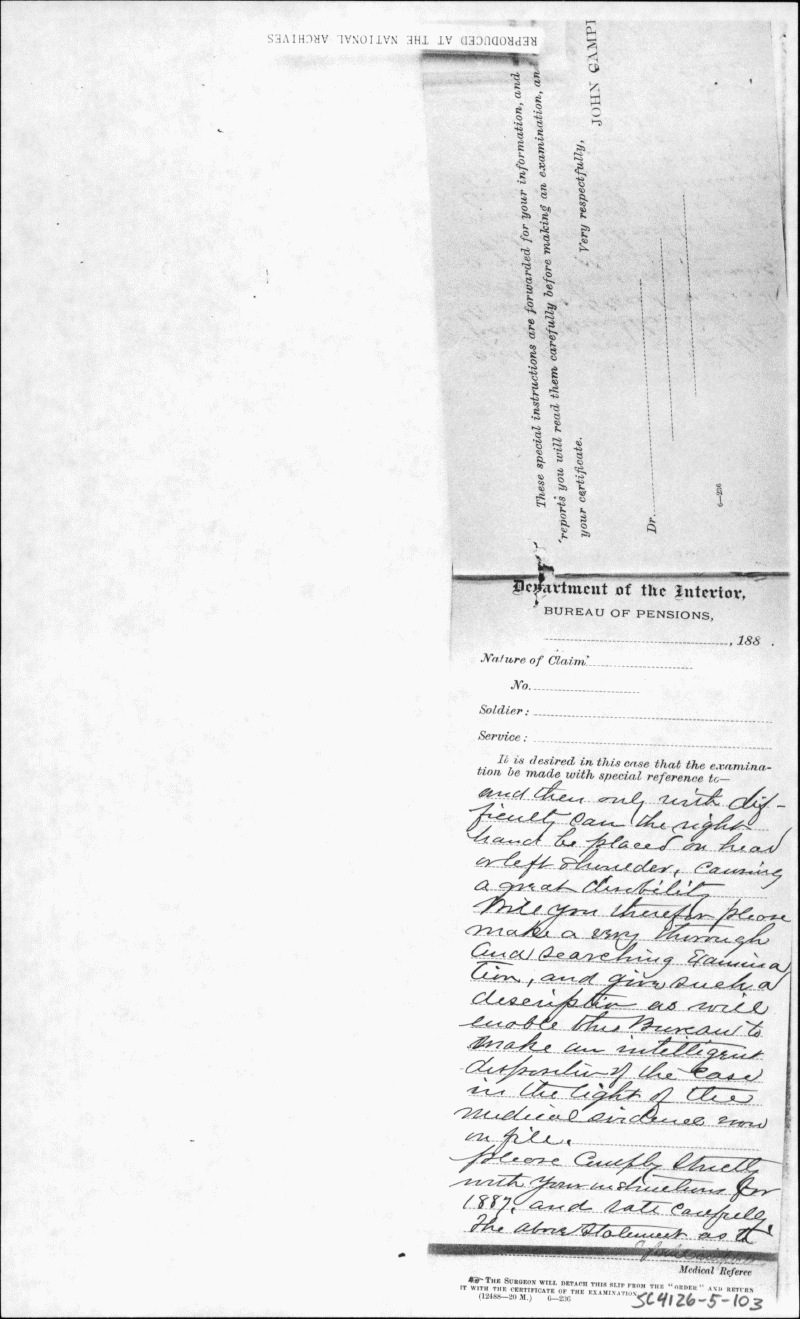 REPRODUCED AT THE NATIONAL ARCHIVES
These special instructions are forwarded for your information, and
reports you will read them carefully before making an examination, an
your certificate.
Very respectfully,
JOHN CAMP
Dr.
6—236
Department of the Interior,
BUREAU OF PENSIONS,
, 188 .
Nature of Claim:
No.
Soldier:
Service:
It is desired in this case that the examina-
tion be made with special reference to—
and then only with dif-
ficulty can the right
hand be placed on head
or left shoulder, causing
a great disability
Will you therefor please
make a very thorough
and searching Examina
tion, and give such a
description as will
enable this Bureau to
make an intelligent
disposition of the case
in the light of the
medical evidence now
on file.
please Comply strictly
with your instructions for
1887, and rate carefully
The above statement as
Medical Referee
THE SURGEON WILL DETACH THIS SLIP FROM THE "ORDER" AND RETURN
IT WITH THE CERTIFICATE OF THE EXAMINATION.
(12488—20 M.) 6—236
SC4126-5-103